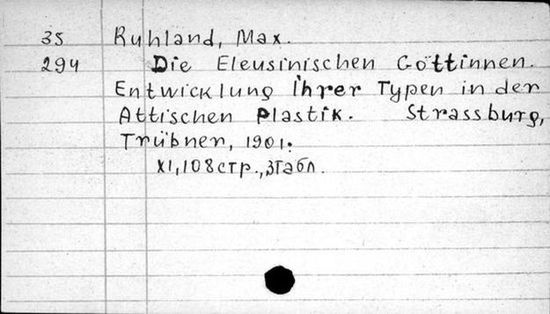 35 Ruhland, Max.
294 Die Eleusinischen Göttinnen.
Entwicklung ihrer Typen in der
Attischen Plastik. Strassburg,
Trübner, 1901.
XI, 108 стр., 3 табл.